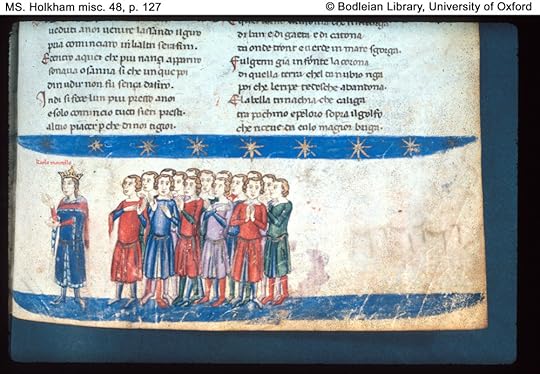 MS. Holkham misc. 48, p. 127
© Bodleian Library, University of Oxford
ueduti anoi uenire lassando ilgiro
pria cominciato in lialti serafini.
Edentro aquei che piu nanzi appariro
sonaua osanna si che unque poi
di riudir non fu senca disiro.
Indi si fece lun piu presso anoi
e solo comincio tucti siem presti.
altuo piacer p che di noi ti gioi.
di bari e di gaeta e di catona
da onde tronto e uerde in mare sgorga.
Fulgemi gia in fronte la corona
di quella terra chel danubio riga
poi che leripe tedesche abandona.
E labella trinachia che caliga
tra pachino e peloro sopra ilgolfo
che riceue da euro magior briga.
karlo martello